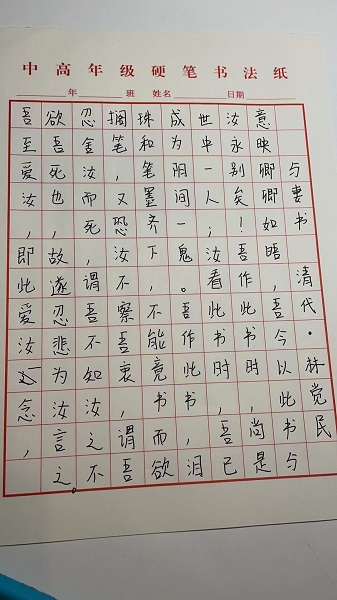 中高年级硬笔书法纸
年 班 姓名 日期
与妻书
清代·林觉民
意映卿卿如晤，吾今以此书与
汝永别矣！吾作此书时，尚是
世中一人；汝看此书时，吾已
成为阴间一鬼。吾作此书，泪
珠和笔墨齐下，不能竟书而欲
搁笔，又恐汝不察吾衷，谓吾
忍舍汝而死，谓吾不知汝之不
欲吾死也，故遂忍悲为汝言之。
吾至爱汝 即此爱汝念，